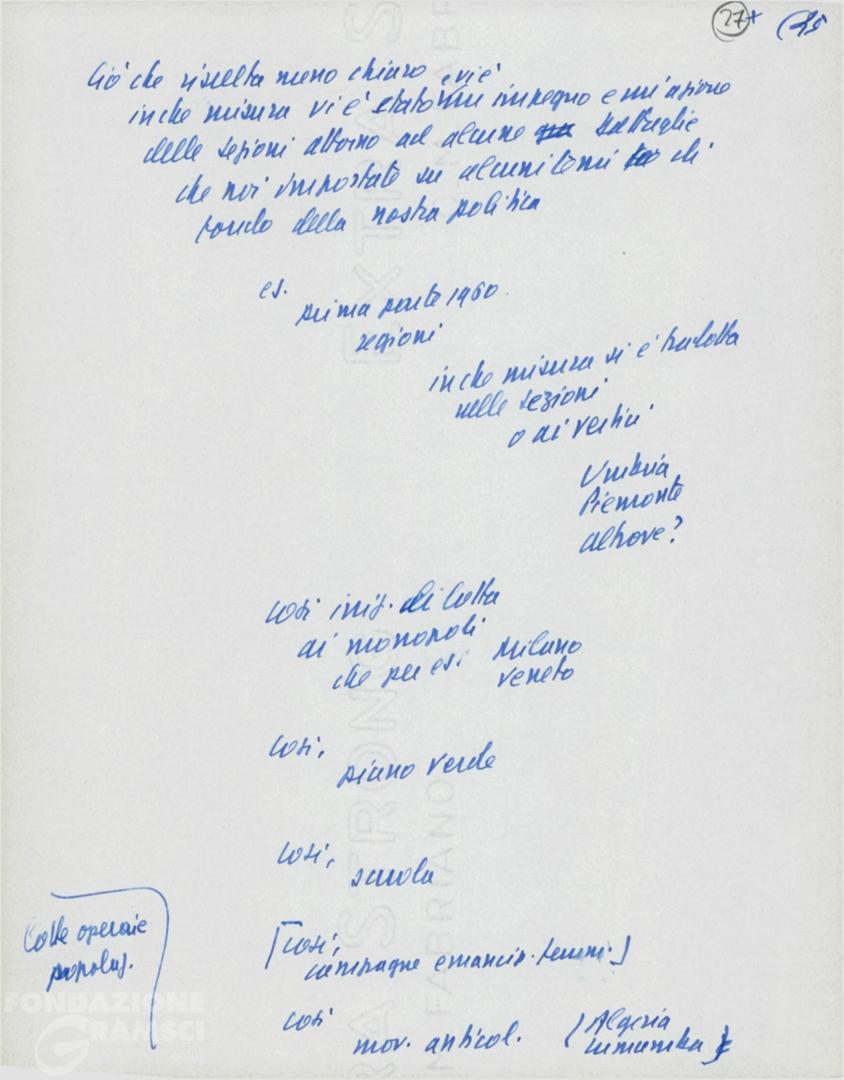 27+
Ciò che risulta meno chiaro, vi è
in che misura vi è stato un impegno e un'azione
delle sezioni attorno ad alcune battaglie
che noi impostate su alcuni temi di
fondo della nostra politica
es.
prima parte 1960
regioni
in che misura si è tradotta
nelle sezioni
o ai vertici
Umbria
Piemonte
altrove?
così iniz. di lotta
ai monopoli
che per es. Milano
Veneto
così,
piano verde
così,
scuola
Lotte operaie
popolaz.
[così,
campagne emancip. femm.]
così
mov. anticol. (Algeria
Lumumba)
FONDAZIONE
GRAMSCI
EXTRA STRONG
FABRIANO